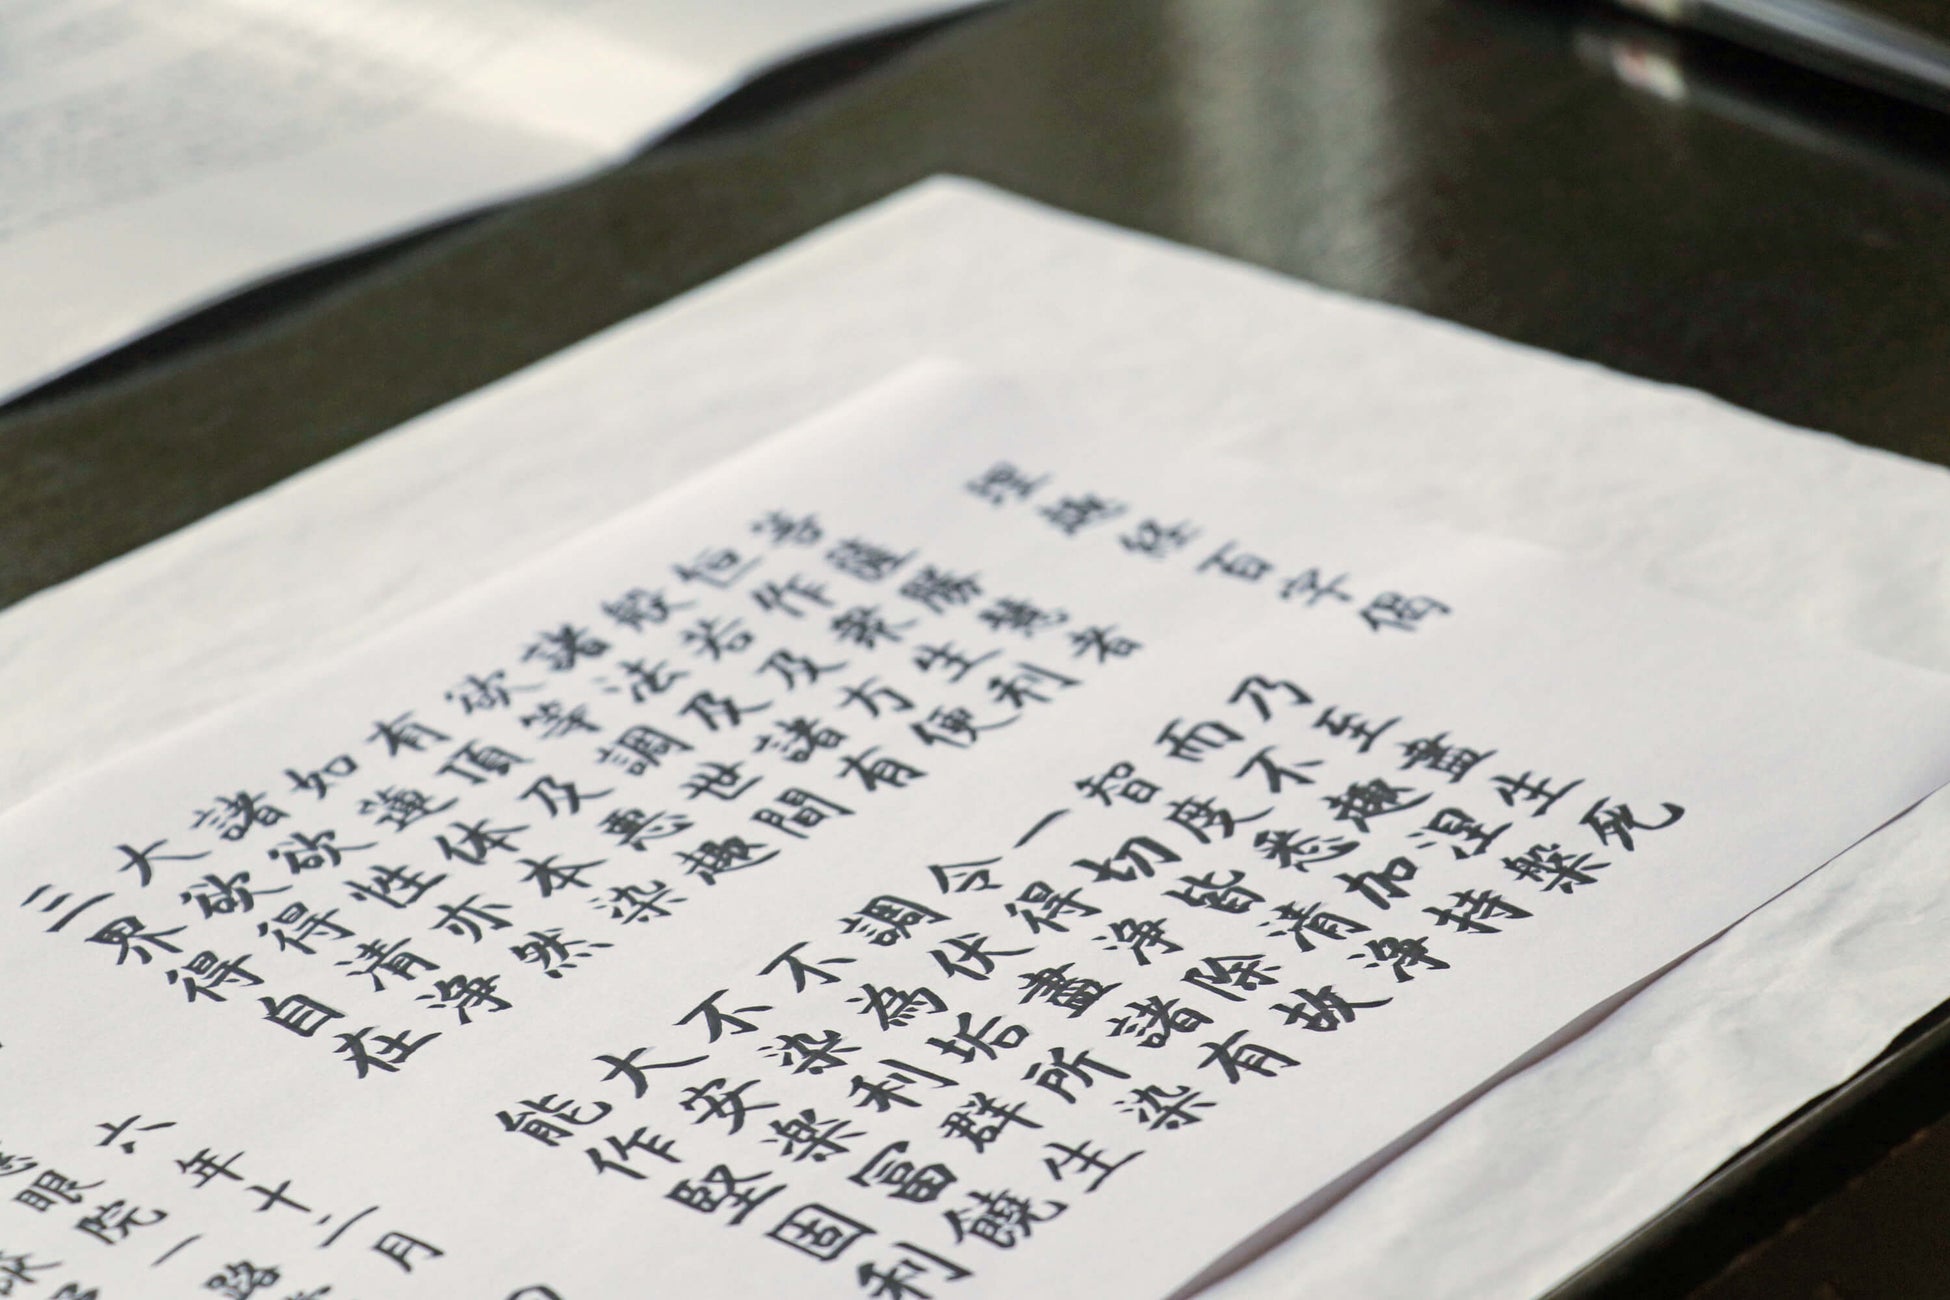 理趣経百字偈
菩薩勝慧者　乃至盡生死
恒作衆生利　而不趣涅槃
般若及方便　智度悉加持
諸法及諸有　一切皆清浄
欲等調世間　令得浄除故
有頂及悪趣　調伏盡諸有
如蓮体本染　不為垢所染
諸欲性亦然　不染利群生
大欲得清浄　大安楽富饒
三界得自在　能作堅固利
六年十二月
眼院一路